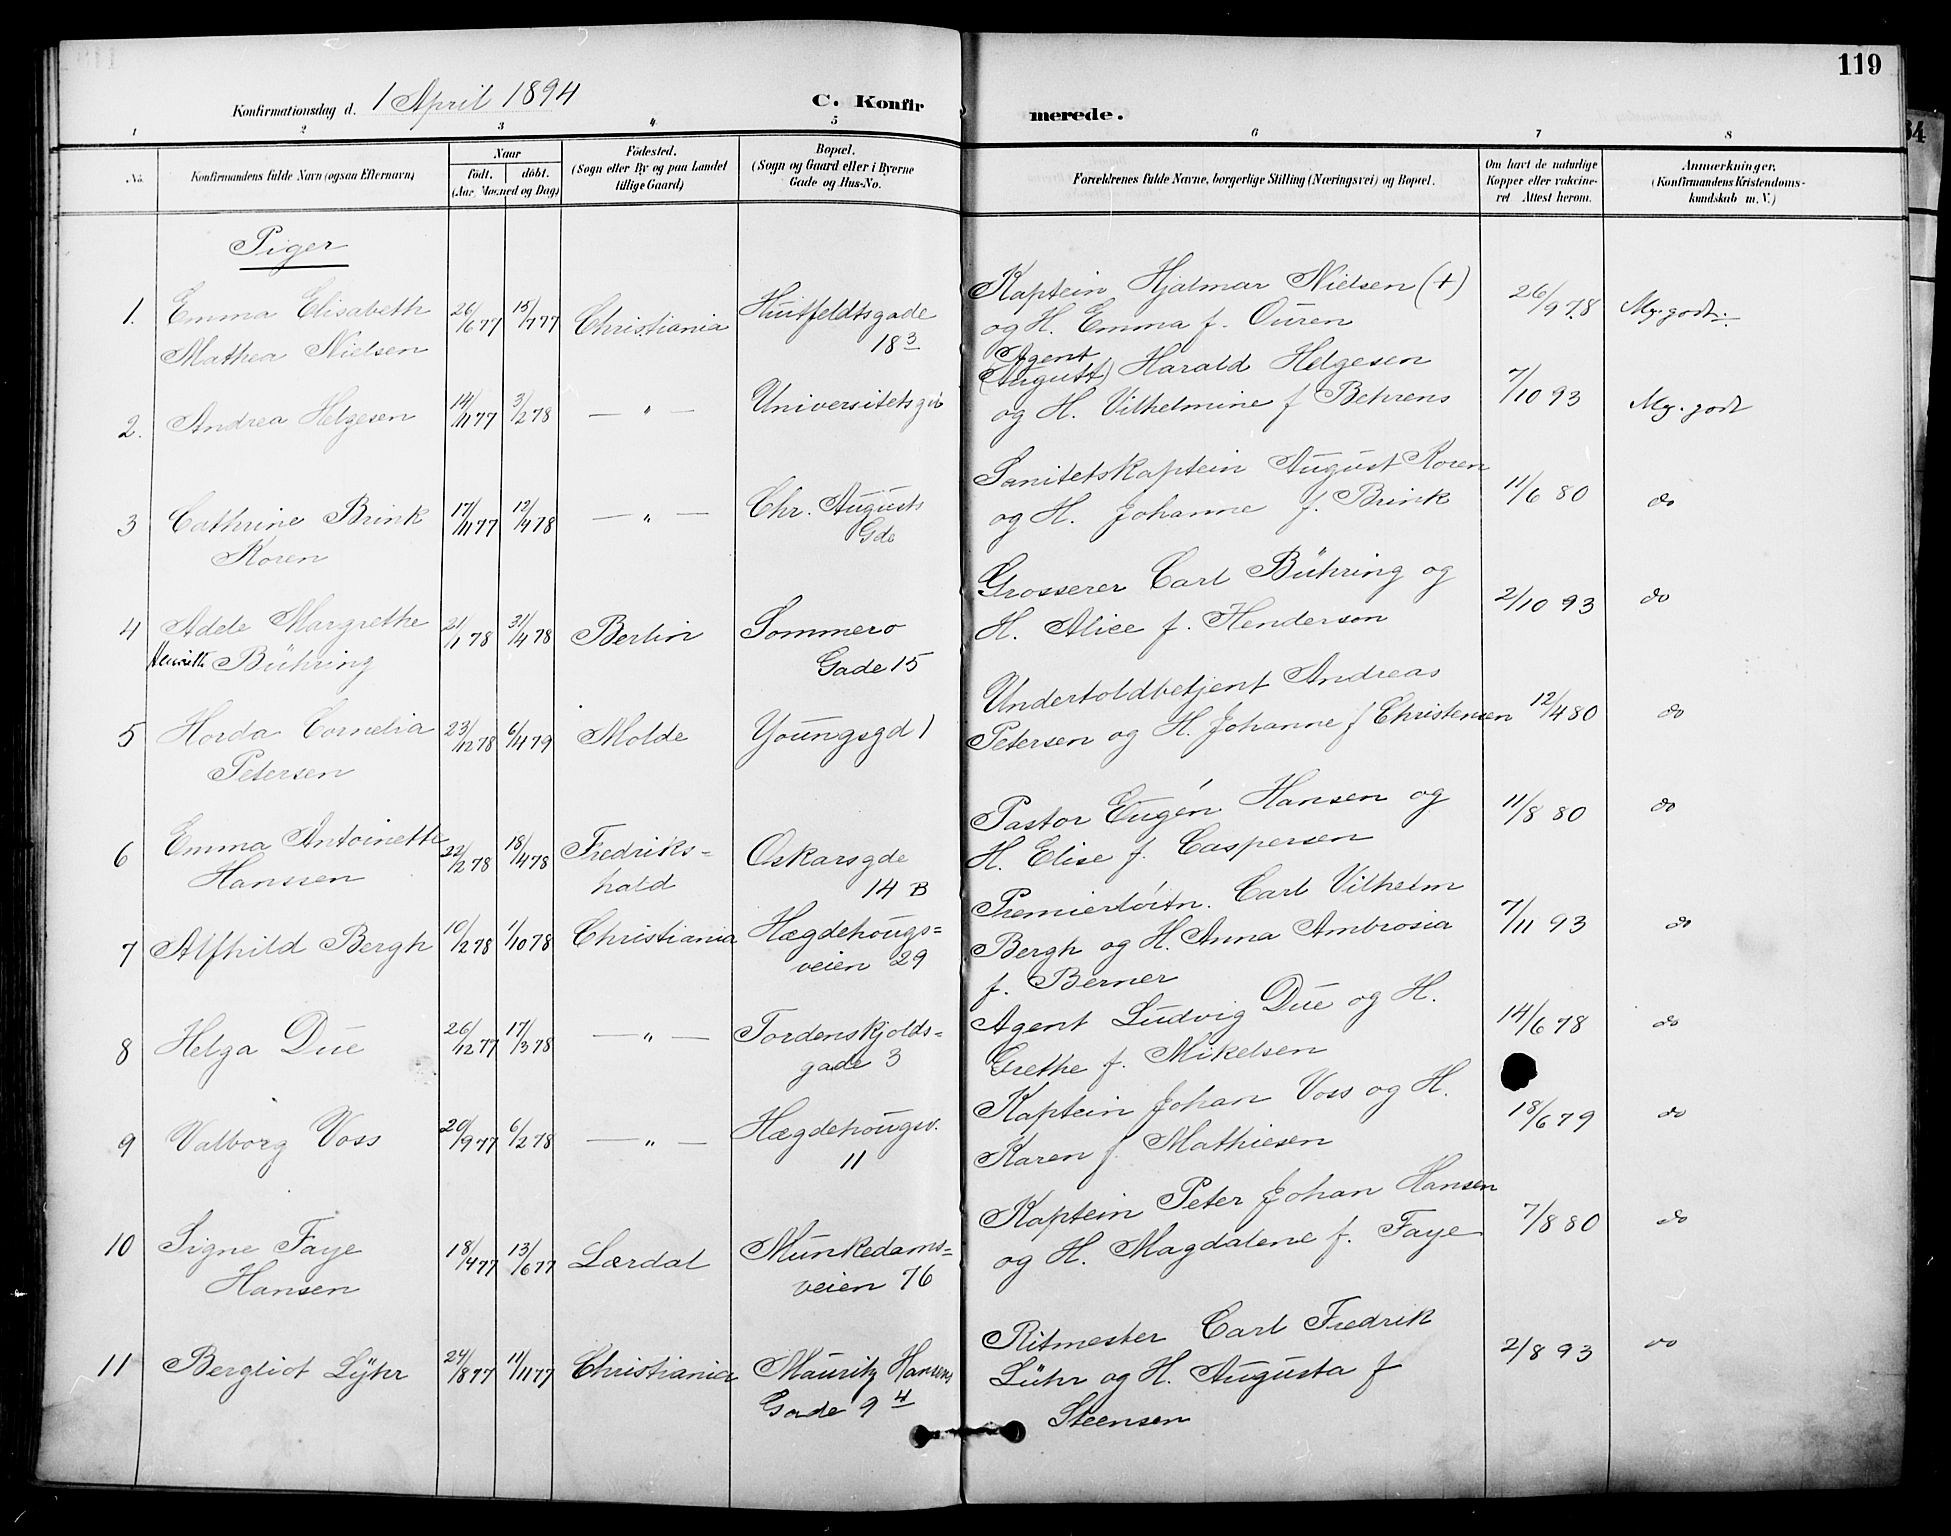 119
Konfirmationsdag d. 1 April 1894
C. Konfirmerede.
1 2 3 4 5 6 7 8
No.
Konfirmandens fulde Navn (ogsaa Efternavn)
Naar
født. døbt.
(Aar, Maaned og Dag)
Fødested.
(Sogn eller By og paa Landet
tillige Gaard)
Bopæl.
(Sogn og Gaard eller i Byerne
Gade og Hus-No.
Forældrenes fulde Navne, borgerlige Stilling (Næringsvei) og Bopæl.
Om havt de naturlige
Kopper eller vakcine-
ret Attest herom.
Anmærkninger.
(Konfirmandens Kristendoms-
kundskab m. V.)
Piger
1. Emma Elisabeth
Mathea Nielsen
26/6 77 15/7 77 Christiania Huitfeldtsgade
18 3
Kaptein Hjalmar Nielsen (+)
og H. Emma f. Ouren
26/9 78 Mg. godt.
2. Andrea Helgesen
14/11 77 3/2 78 — " — Universitetsgd
Agent
(August) Harald Helgesen
og H. Vilhelmine f Behrens
7/10 93 Mg. godt
3 Cathrine Brink
Koren
17/11 77 12/4 78 — " — Chr. Augusts
Gde
Sanitetskaptein August Koren
og H. Johanne f. Brink
11/6 80 do
4 Adele Margrethe
Henriette Bühring
21/1 78 31/4 78 Berlin Sommero
Gade 15
Grosserer Carl Bühring og
H. Alice f. Henderson
2/10 93 do
5 Horda Cornelia
Petersen
23/12 78 6/4 79 Molde Youngsgd 1
Undertoldbetjent Andreas
Petersen og H. Johanne f Christensen
12/4 80 do
6 Emma Antoinette
Hanssen
22/2 78 18/4 78 Fredriks=
hald
Oskarsgde
14 B
Pastor Eugén Hansen og
H. Elise f. Caspersen
11/8 80 do
7 Alfhild Bergh
10/2 78 1/10 78 Christiania Hægdehougs=
veien 29
Premierløitn. Carl Vilhelm
Bergh og H. Anna Ambrosia
f. Berner
7/11 93 do
8 Helga Due
26/12 77 17/3 78 — " — Tordenskjolds=
gade 3
Agent Ludvig Due og H.
Grethe f. Mikelsen
14/6 78 do
9 Valborg Voss
20/9 77 6/2 78 — " — Hægdehougsv.
11
Kaptein Johan Voss og H.
Karen f Mathiesen
18/6 79 do
10 Signe Faye
Hansen
18/4 77 13/6 77 Lærdal Munkedams=
veien 76
Kaptein Peter Johan Hansen
og H. Magdalene f. Faye
7/8 80 do
11 Bergliot Lÿhr
24/8 77 11/11 77 Christiania Mauritz Hansens
Gade 9 4
Ritmester Carl Fredrik
Lühr og H. Augusta f
Steensen
2/8 93 do